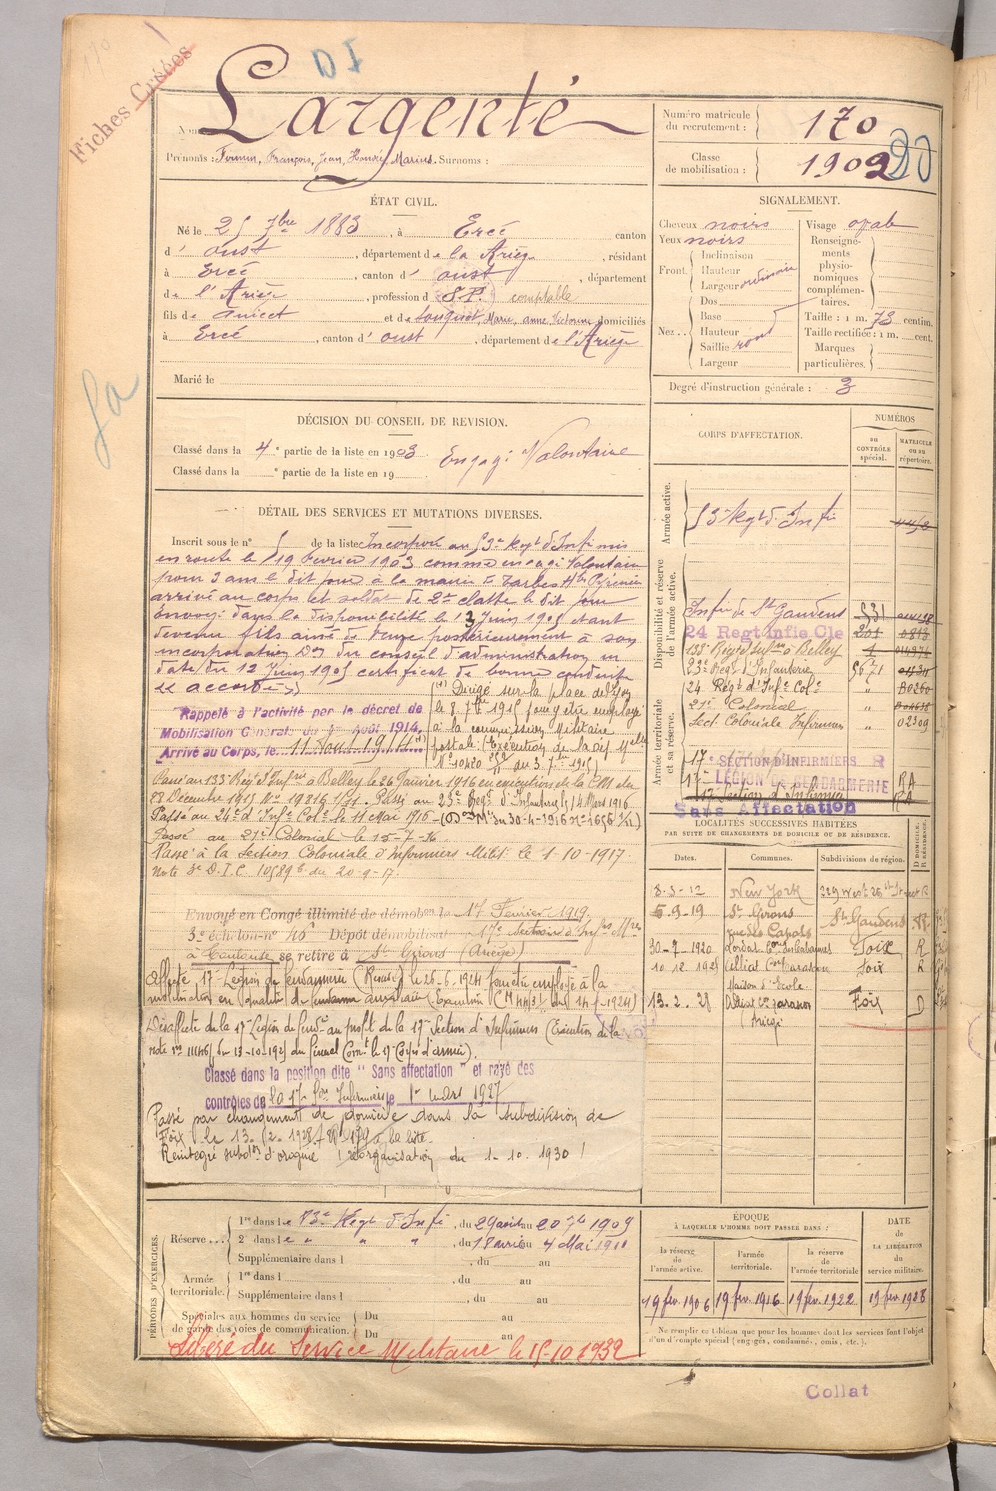 Fiches Créées
DI
Nom Largenté
Prénoms : Firmin, François, Jean, Honoré, Marius. Surnoms :
Numéro matricule du recrutement : 170
Classe de mobilisation : 1902
ÉTAT CIVIL.
Né le 25 7bre 1883, à Ercé canton
d'oust, département de la Ariège, résidant
à Ercé, canton d'oust, département
de l'Ariège, profession d S.P. comptable
fils de Anicet et de Souquet, Marie, anne, Victorine domiciliés
à Ercé, canton d'oust, département de l'Ariège
Marié le
SIGNALEMENT.
Cheveux noirs
Yeux noirs
Front. Inclinaison
Hauteur
Largeur ordinaire
Nez... Dos
Base
Hauteur
Saillie
Largeur
Visage oval
Renseignements physionomiques complémentaires.
Taille : 1 m. 73 centim.
Taille rectifiée : 1 m. cent.
Marques particulières.
Degré d'instruction générale : 3
DÉCISION DU CONSEIL DE REVISION.
Classé dans la 4e partie de la liste en 1903 Engagé Volontaire
Classé dans la e partie de la liste en 19
DÉTAIL DES SERVICES ET MUTATIONS DIVERSES.
Inscrit sous le n° de la liste Incorporé au 53e Regt d'Infie mis
en route le 19 Février 1903 comme engagé Volontaire
pour 3 ans le dit jour à la mairie Tarbes Htes Pyrénées
arrivé au corps et soldat de 2e classe le dit jour
Envoyé dans la disponibilité le 13 Juin 1905 étant
devenu fils aîné de veuve postérieurement à son
incorporation Don du conseil d'administration en
date du 12 Juin 1905 certificat de bonne conduite
accordé
Rappelé à l'activité par le décret de
Mobilisation Générale du 1er Août 1914.
Arrivé au Corps, le 11 Aout 1914
Dirigé sur la place de
le 8 7bre 1915 pour y être employé
à la commission Militaire
postale (Exécution de la
du 3 7bre 1915)
Passé au 133e Régt d'Infrie à Belley le 26 Janvier 1916 en exécution de la C.M. du
28 Décembre 1915. Passé au 23e Regt d'Infanterie le 14 Mars 1916
Passé au 24e d'Infie Colle le 11 Mai 1916 du 30-4-1916
Passé au 21e Colonial le 15-7-16
Passé à la Section Coloniale d'Infirmiers Milit. le 1-10-1917
Note 3e D.I.C. 10589 du 20-9-17.
Envoyé en Congé illimité de démobon le 17 Fevrier 1919.
3e échelon n° 46 Dépôt démobilisat 17e Section d'Infrs Mres
à Toulouse se retire à St Girons (Ariège)
Affecté 17e Légion de Gendarmerie (Réserve) le 26-6-1924 pour être employé à la
mobilisation en qualité de gendarme auxiliaire
Désaffecté de la 17e Légion de Gendie au profit de la 17e Section d'Infirmiers (Exécution de la
note du 13-10-1925 du Général Comt le 17e Corps d'armée).
Classé dans la position dite " Sans affectation " et rayé des
contrôles de la 17e Son Infirmiers le 1er Mars 1927
Passé par changement de domicile dans la subdivision de
Foix le 13.2.1928
Réintegré subdon d'origine réorganisation du 1-10-1930
CORPS D'AFFECTATION.
NUMÉROS
au CONTRÔLE spécial.
MATRICULE ou au répertoire.
Armée active.
53e Regt d'Infie
Disponibilité et réserve de l'armée active.
Infie de St Gaudens
24 Regt Infie Cle
133e Régt d'Infrie à Belley
23e Régt d'Infanterie
24 Régt d'Infe Cole
21e Colonial
Sect. Coloniale Infirmiers 02309
Armée territoriale et sa réserve.
17e SECTION D'INFIRMIERS R
17e LÉGION DE GENDARMERIE RA
17 Section d'Infirmiers RA
Sans Affectation
LOCALITÉS SUCCESSIVES HABITÉES
PAR SUITE DE CHANGEMENTS DE DOMICILE OU DE RÉSIDENCE.
Dates. Communes. Subdivisions de région. D DOMICILE. R RÉSIDENCE.
8-3-12 New York 229 West 25th Street R
5-9-19 St Girons St Gaudens R
30-7-1920 Foix R
10.12.1925 Alliat Con Tarascon Foix R
Maison d'Ecole
13.2.28 Alliat Con Tarascon Foix D
(Ariège)
PÉRIODES D'EXERCICES.
Réserve... 1re dans le 83e Régt d'Infie, du 29 août au 20 7bre 1909
2e dans le " " ", du 18 avril au 4 Mai 1911
Supplémentaire dans l , du au
Armée territoriale. 1re dans l , du au
Supplémentaire dans l , du au
Spéciales aux hommes du service de garde des voies de communication. Du au
Du au
Libéré du Service Militaire le 15-10-1932
ÉPOQUE
À LAQUELLE L'HOMME DOIT PASSER DANS :
la réserve de l'armée active. l'armée territoriale. la réserve de l'armée territoriale.
DATE DE LA LIBÉRATION du service militaire.
19 fev 1906 19 fev. 1916 19 fev. 1922 19 fev 1928
Ne remplir ce tableau que pour les hommes dont les services font l'objet
d'un compte spécial (engagés, condamnés, omis, etc.).
Collat